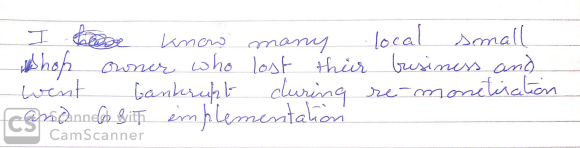 I know many local small
shop owner who lost their business and
went bankrupt during re-monetisation
and GST implementation
CS Scanned with
CamScanner